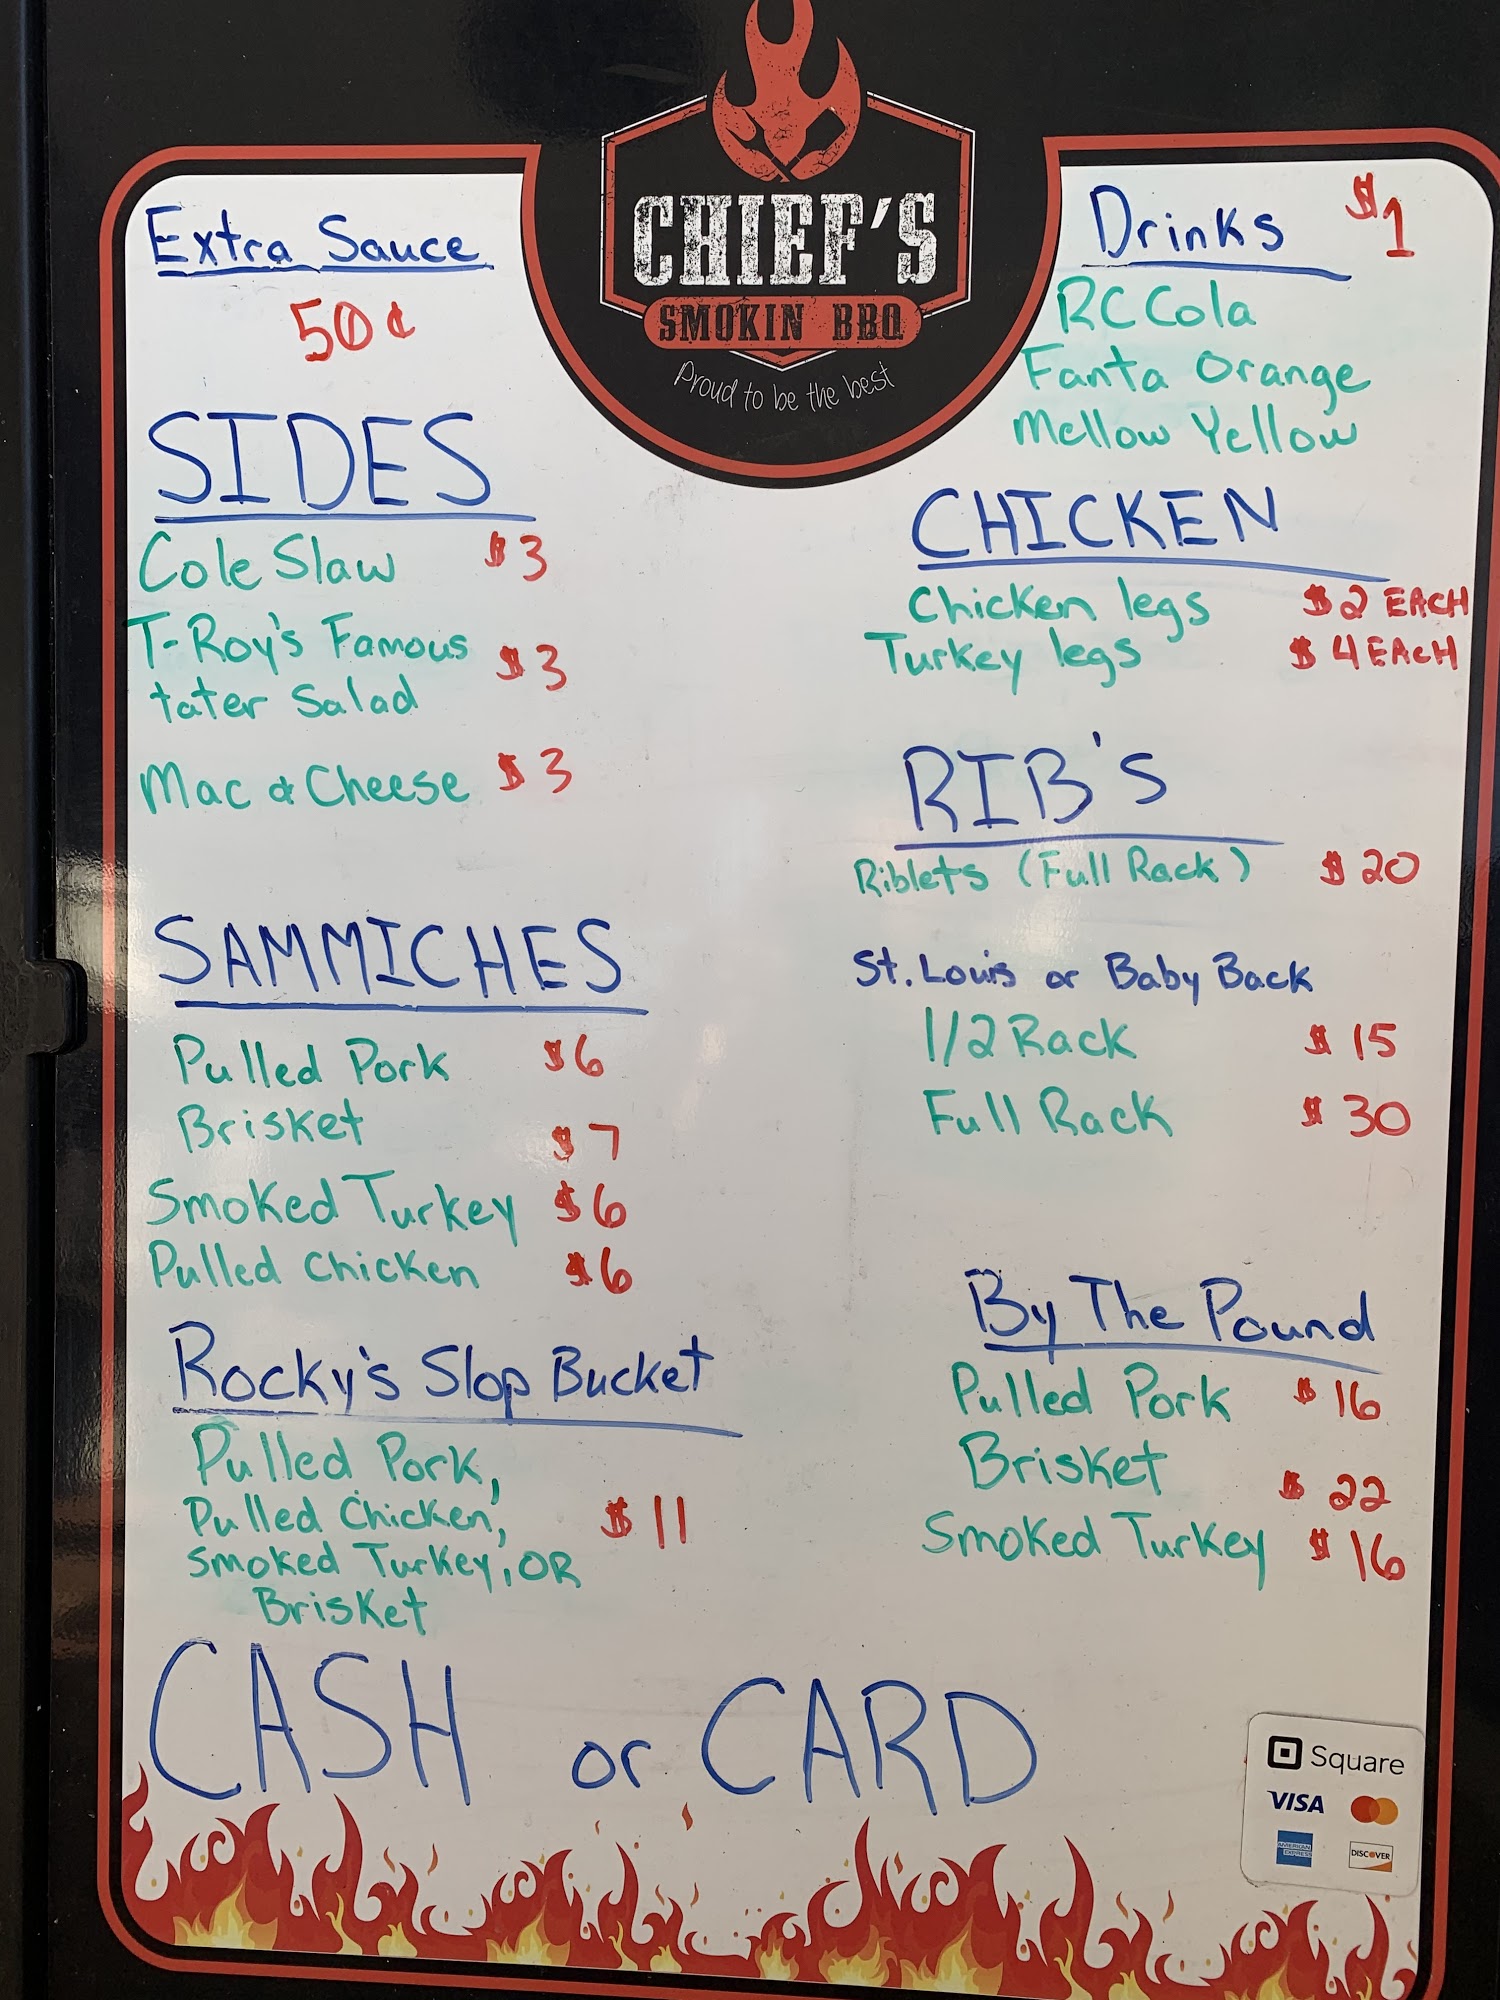 CHIEF'S
SMOKIN BBQ
Proud to be the best
Extra Sauce
50¢
SIDES
Cole Slaw $3
T-Roy's Famous
tater Salad $3
Mac & Cheese $3
SAMMICHES
Pulled Pork $6
Brisket $7
Smoked Turkey $6
Pulled Chicken $6
Rocky's Slop Bucket
Pulled Pork,
Pulled Chicken, $11
Smoked Turkey, OR
Brisket
Drinks $1
RC Cola
Fanta Orange
Mellow Yellow
CHICKEN
Chicken legs $2 EACH
Turkey legs $4 EACH
RIB'S
Riblets (Full Rack) $20
St. Louis or Baby Back
1/2 Rack $15
Full Rack $30
By The Pound
Pulled Pork $16
Brisket $22
Smoked Turkey $16
CASH or CARD
Square
VISA
AMERICAN
EXPRESS
DISCOVER